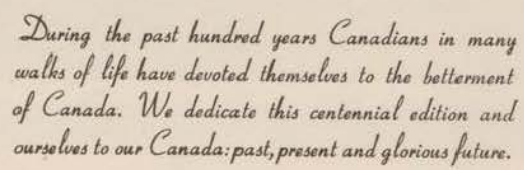 During the past hundred years Canadians in many
walks of life have devoted themselves to the betterment
of Canada. We dedicate this centennial edition and
ourselves to our Canada: past, present and glorious future.